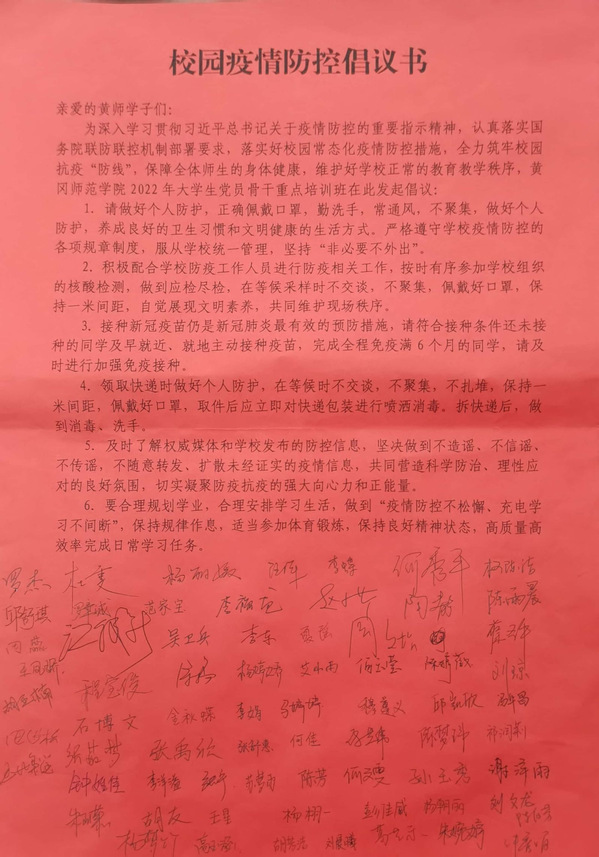 校园疫情防控倡议书
亲爱的黄师学子们：
为深入学习贯彻习近平总书记关于疫情防控的重要指示精神，认真落实国
务院联防联控机制部署要求，落实好校园常态化疫情防控措施，全力筑牢校园
抗疫“防线”，保障全体师生的身体健康，维护好学校正常的教育教学秩序，黄
冈师范学院2022年大学生党员骨干重点培训班在此发起倡议：
1. 请做好个人防护，正确佩戴口罩，勤洗手，常通风，不聚集，做好个人
防护，养成良好的卫生习惯和文明健康的生活方式。严格遵守学校疫情防控的
各项规章制度，服从学校统一管理，坚持“非必要不外出”。
2. 积极配合学校防疫工作人员进行防疫相关工作，按时有序参加学校组织
的核酸检测，做到应检尽检，在等候采样时不交谈，不聚集，佩戴好口罩，保
持一米间距，自觉展现文明素养，共同维护现场秩序。
3. 接种新冠疫苗仍是新冠肺炎最有效的预防措施，请符合接种条件还未接
种的同学及早就近、就地主动接种疫苗，完成全程免疫满6个月的同学，请及
时进行加强免疫接种。
4. 领取快递时做好个人防护，在等候时不交谈，不聚集，不扎堆，保持一
米间距，佩戴好口罩，取件后应立即对快递包装进行喷洒消毒。拆快递后，做
到消毒、洗手。
5. 及时了解权威媒体和学校发布的防控信息，坚决做到不造谣、不信谣、
不传谣，不随意转发、扩散未经证实的疫情信息，共同营造科学防治、理性应
对的良好氛围，切实凝聚防疫抗疫的强大向心力和正能量。
6. 要合理规划学业，合理安排学习生活，做到“疫情防控不松懈、充电学
习不间断”，保持规律作息，适当参加体育锻炼，保持良好精神状态，高质量高
效率完成日常学习任务。
罗杰 杨丽敏 汪伟
邱舒琪 陶静 陈雨晨
吴卫兵 李东
杨婷婷 艾小雨
程宝俊 刘琼
石博文 李娟 马婷婷 邱凯欣
张茹梦 张禹欣 何佳 陈梦玮
钟维佳 陈芳 谢泽雨
胡友 王星 杨栩一 彭佳威 刘文龙